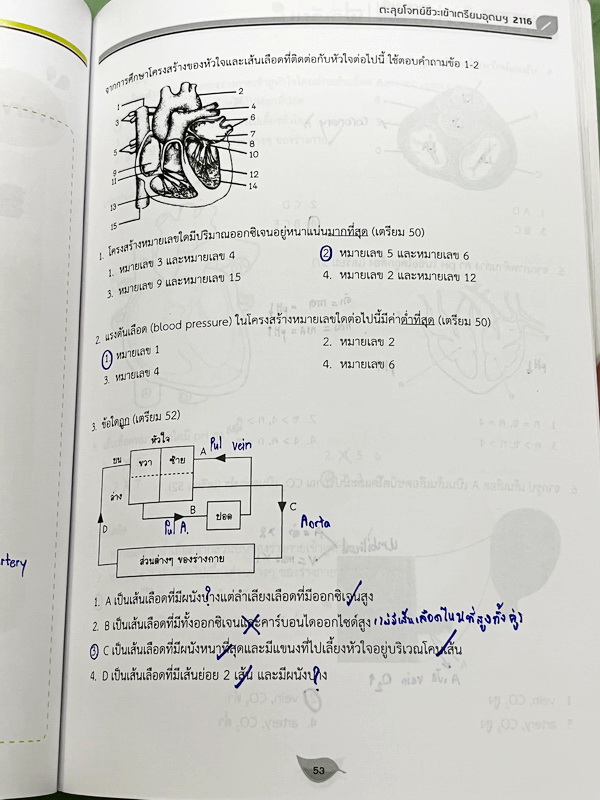 ตะลุยโจทย์ชีวะเข้าเตรียมอุดมฯ 2116
จากการศึกษาโครงสร้างของหัวใจและเส้นเลือดที่ติดต่อกับหัวใจต่อไปนี้ ใช้ตอบคำถามข้อ 1-2
1
2
3
4
6
5
7
8
9
10
11
12
13
14
15
1. โครงสร้างหมายเลขใดมีปริมาณออกซิเจนอยู่หนาแน่นมากที่สุด (เตรียม 50)
1. หมายเลข 3 และหมายเลข 4
2 หมายเลข 5 และหมายเลข 6
3. หมายเลข 9 และหมายเลข 15
4. หมายเลข 2 และหมายเลข 12
2. แรงดันเลือด (blood pressure) ในโครงสร้างหมายเลขใดต่อไปนี้มีค่าต่ำที่สุด (เตรียม 50)
1 หมายเลข 1
2. หมายเลข 2
3. หมายเลข 4
4. หมายเลข 6
3. ข้อใดถูก (เตรียม 52)
หัวใจ
บน
ขวา
ซ้าย
A
Pul vein
ล่าง
B
ปอด
C
Pul A.
Aorta
D
ส่วนต่างๆ ของร่างกาย
rtery
1. A เป็นเส้นเลือดที่มีผนังบางแต่ลำเลียงเลือดที่มีออกซิเจนสูง
2. B เป็นเส้นเลือดที่มีทั้งออกซิเจนและคาร์บอนไดออกไซด์สูง (ไม่มีเส้นเลือดไหนที่สูงทั้งคู่)
3 C เป็นเส้นเลือดที่มีผนังหนาที่สุดและมีแขนงที่ไปเลี้ยงหัวใจอยู่บริเวณโคนเส้น
4. D เป็นเส้นเลือดที่มีเส้นย่อย 2 เส้น และมีผนังบาง
53